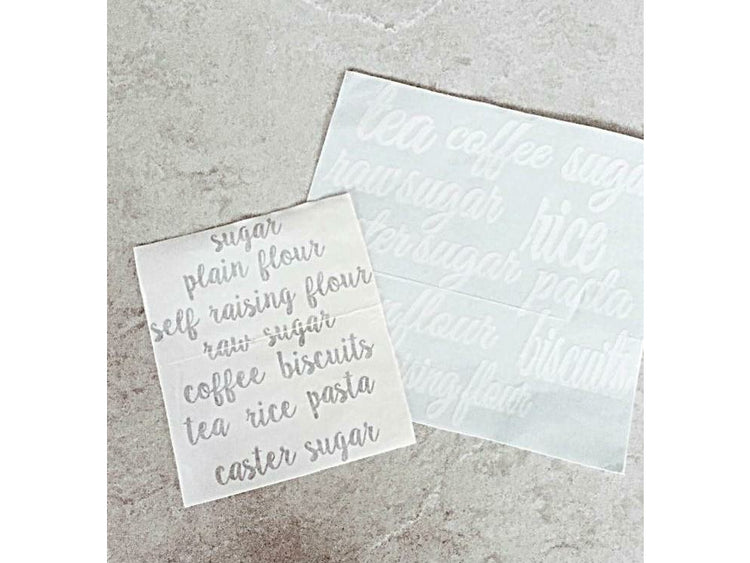 sugar
plain flour
self raising flour
raw sugar
coffee biscuits
tea rice pasta
caster sugar
tea coffee suga
raw sugar rice
ster sugar pasta
flour biscuits
ising flour